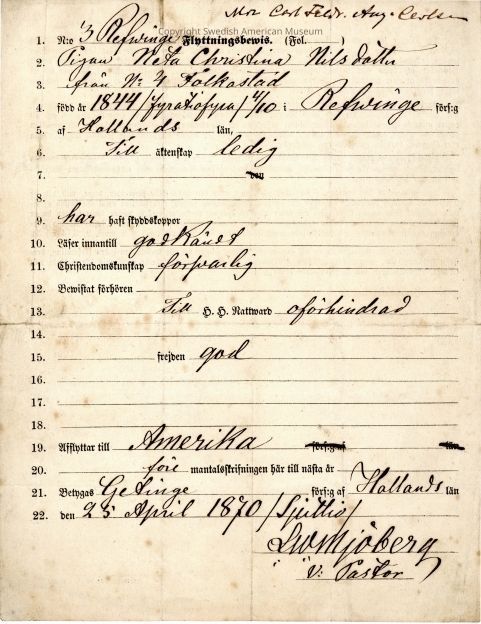 Mrs Carl Fredr. Aug. Carlson
Copyright Swedish American Museum
1. N:o 3 Refwinge Flyttningsbewis. (Fol.        )
2. Pigan Neta Christina Nilsdotter
3. från N: 4 Folkastad
4. född år 1844 /fyratiofyra/ 4/10 i Refwinge förs:g
5. af Hallands län,
6. Till äktenskap ledig
7. den
8.
9. har haft skyddskoppor
10. Läser innantill godkändt
11. Christendomskunskap försvarlig
12. Bewistat förhören
13. Till H. H. Nattward oförhindrad
14.
15. frejden god
16.
17.
18.
19. Afflyttar till Amerika förs:g i län
20. före mantalsskrifningen här till nästa år
21. Betygas Getinge förs:g af Hallands län
22. den 25 April 1870 /Sjuttio/
LWMjöberg
V. Pastor